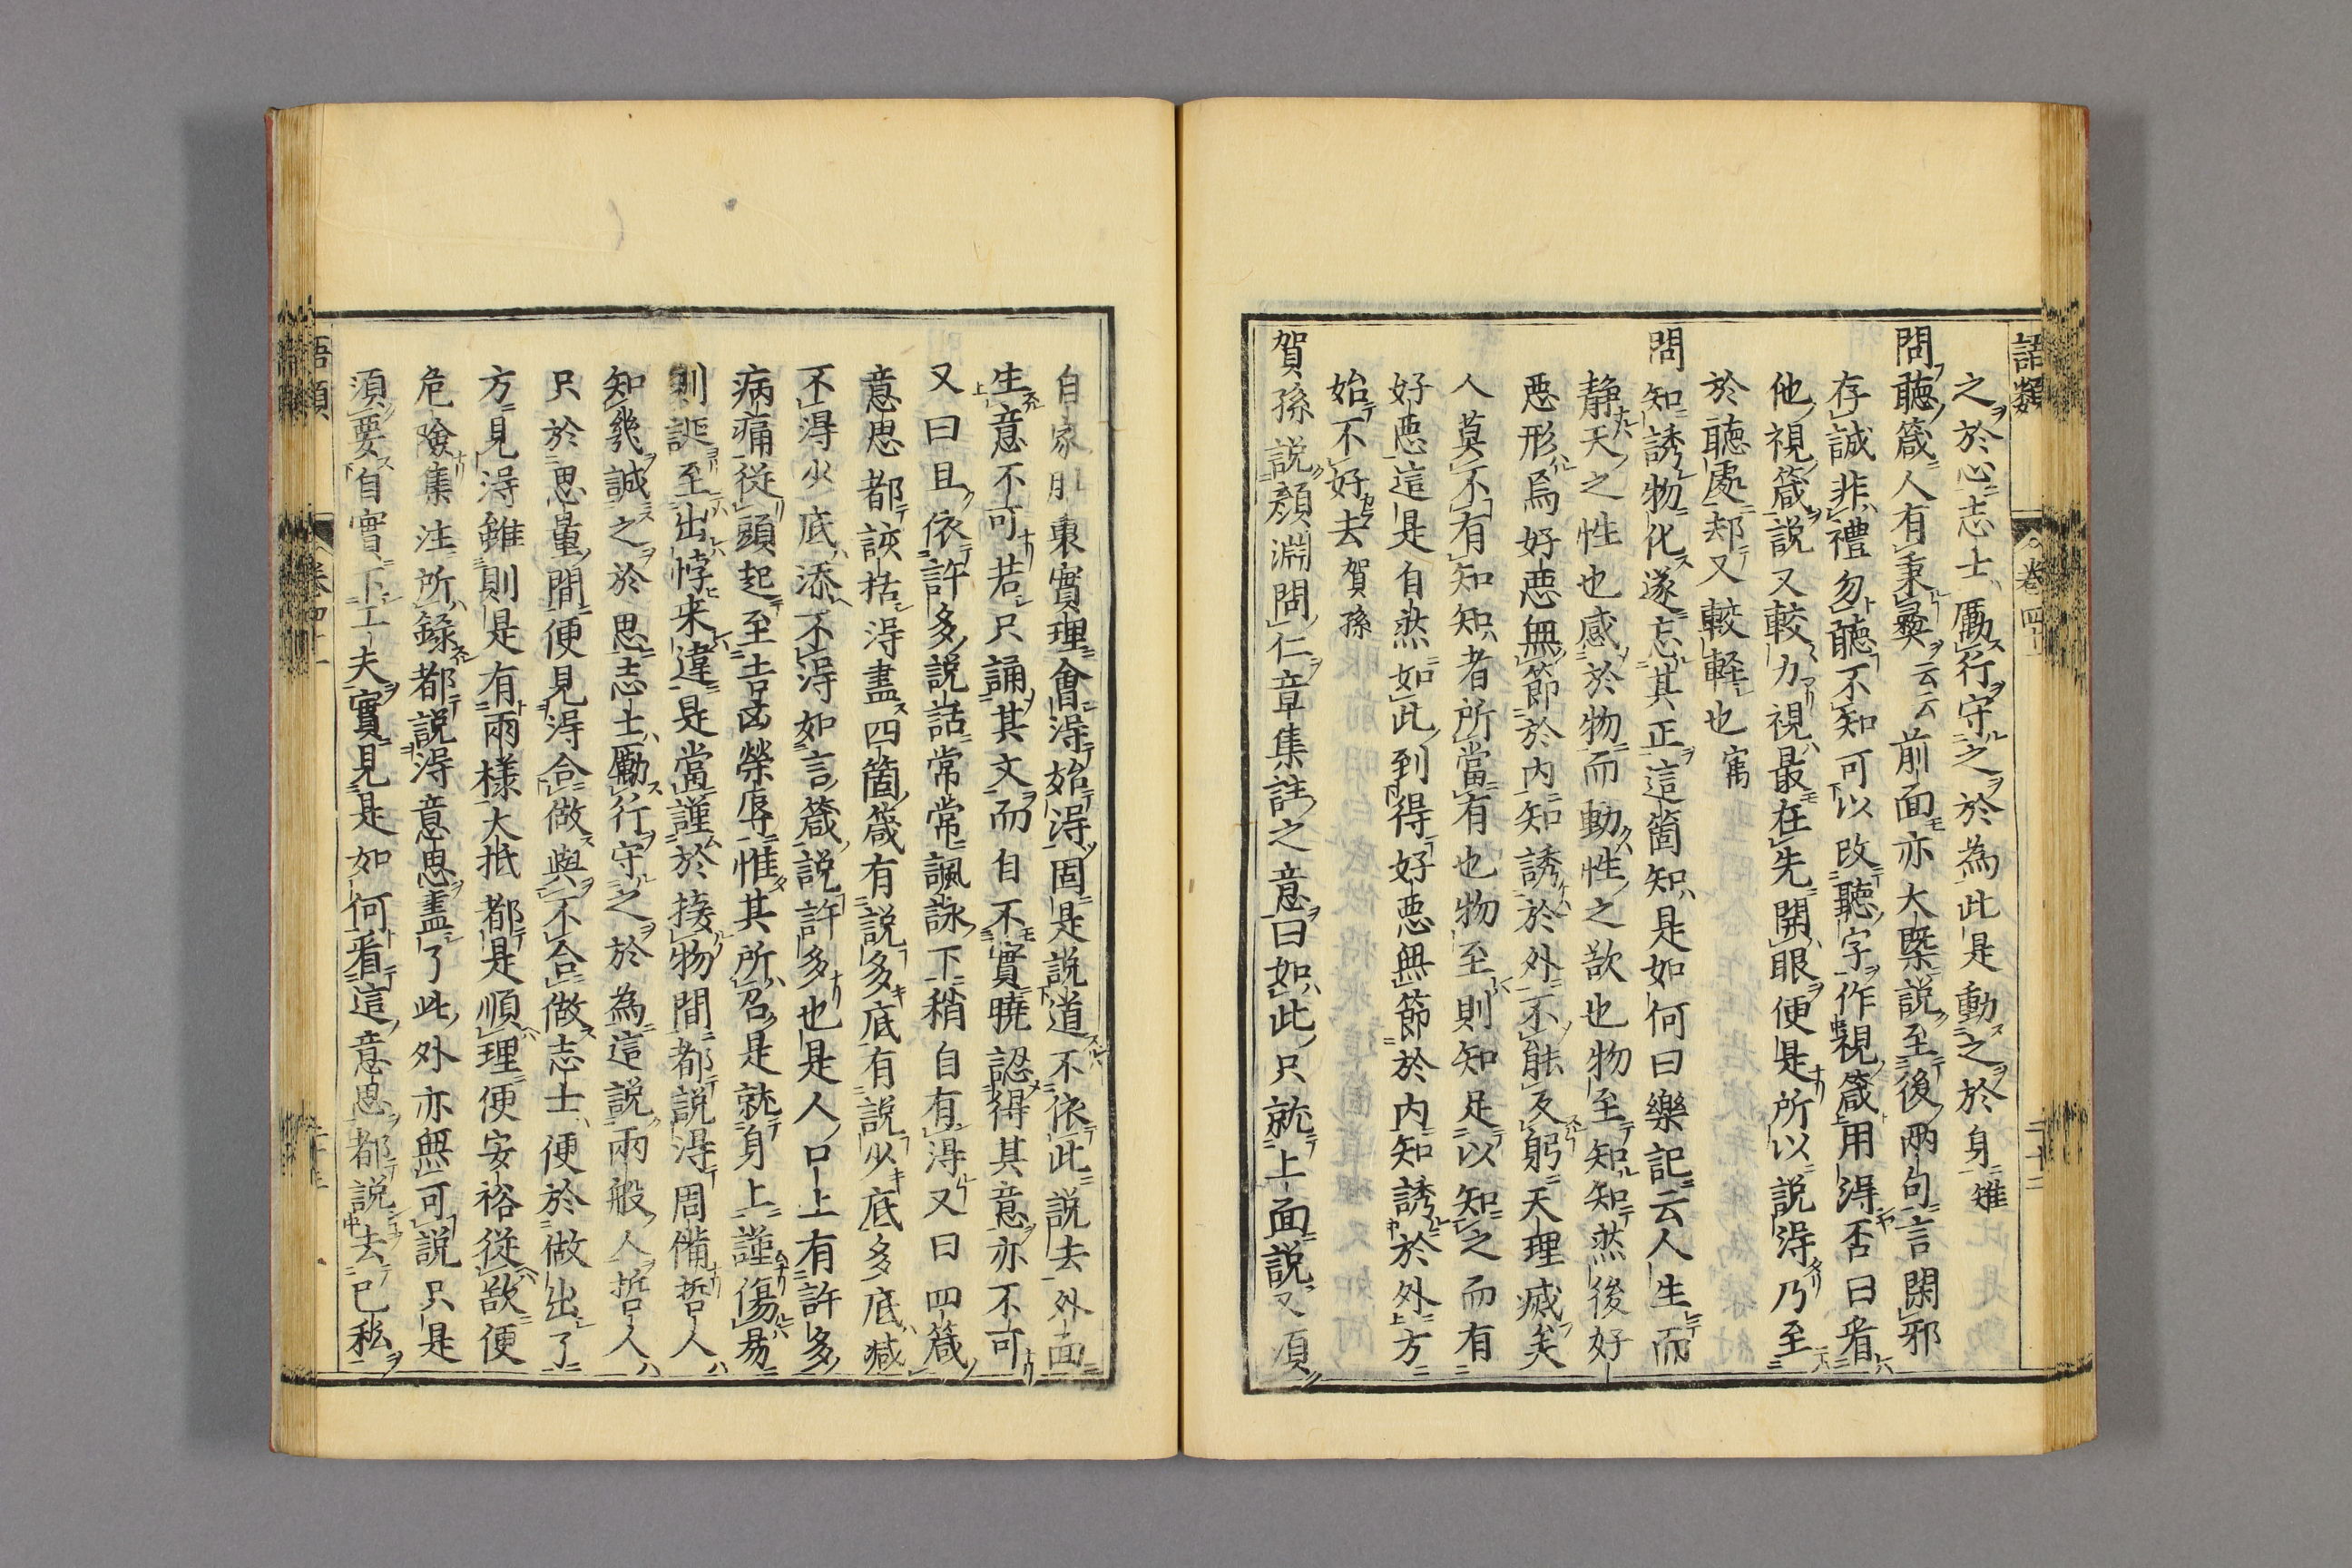 語類 卷四十一 二十二
之於心志士厲行守之於為此是動之於身雉
問聽箴人有秉彝云云前面亦大槩說至後兩句言閑邪
存誠非禮勿聽不知可以改聽字作視箴用得否曰看
他視箴說又較力視最在先開眼便是所以說得乃至
於聽處却又較輕也㝢
問知誘物化遂忘其正這箇知是如何曰樂記云人生而
靜天之性也感於物而動性之欲也物至知知然後好
惡形焉好惡無節於內知誘於外不能反躬天理滅矣
人莫不有知知者所當有也物至則知足以知之而有
好惡這是自然如此到得好惡無節於內知誘於外方
始不好去賀孫
賀孫說顏淵問仁章集註之意曰如此只就上面說又須
自家肚裏實理會得始得固是說道不依此說去外面
生意不可若只誦其文而自不實曉認得其意亦不可
又曰且依許多說話常常諷詠下稍自有得又曰四箴
意思都該括得盡四箇箴有說多底有說少底多底減
不得少底添不得如言箴說許多也是人口上有許多
病痛從頭起至吉凶榮辱惟其所召是就身上謹傷易
則誕至出悖来違是當謹於接物間都說得周備哲人
知幾誠之於思志士厲行守之於為這說兩般人哲人
只於思量間便見得合做與不合做志士便於做出了
方見得雖則是有兩樣大抵都是順理便安裕從欲便
危險集注所錄都說得意思盡了此外亦無可說只是
須要自實下工夫實見是如何看這意思都說去己私
語類 卷四十一